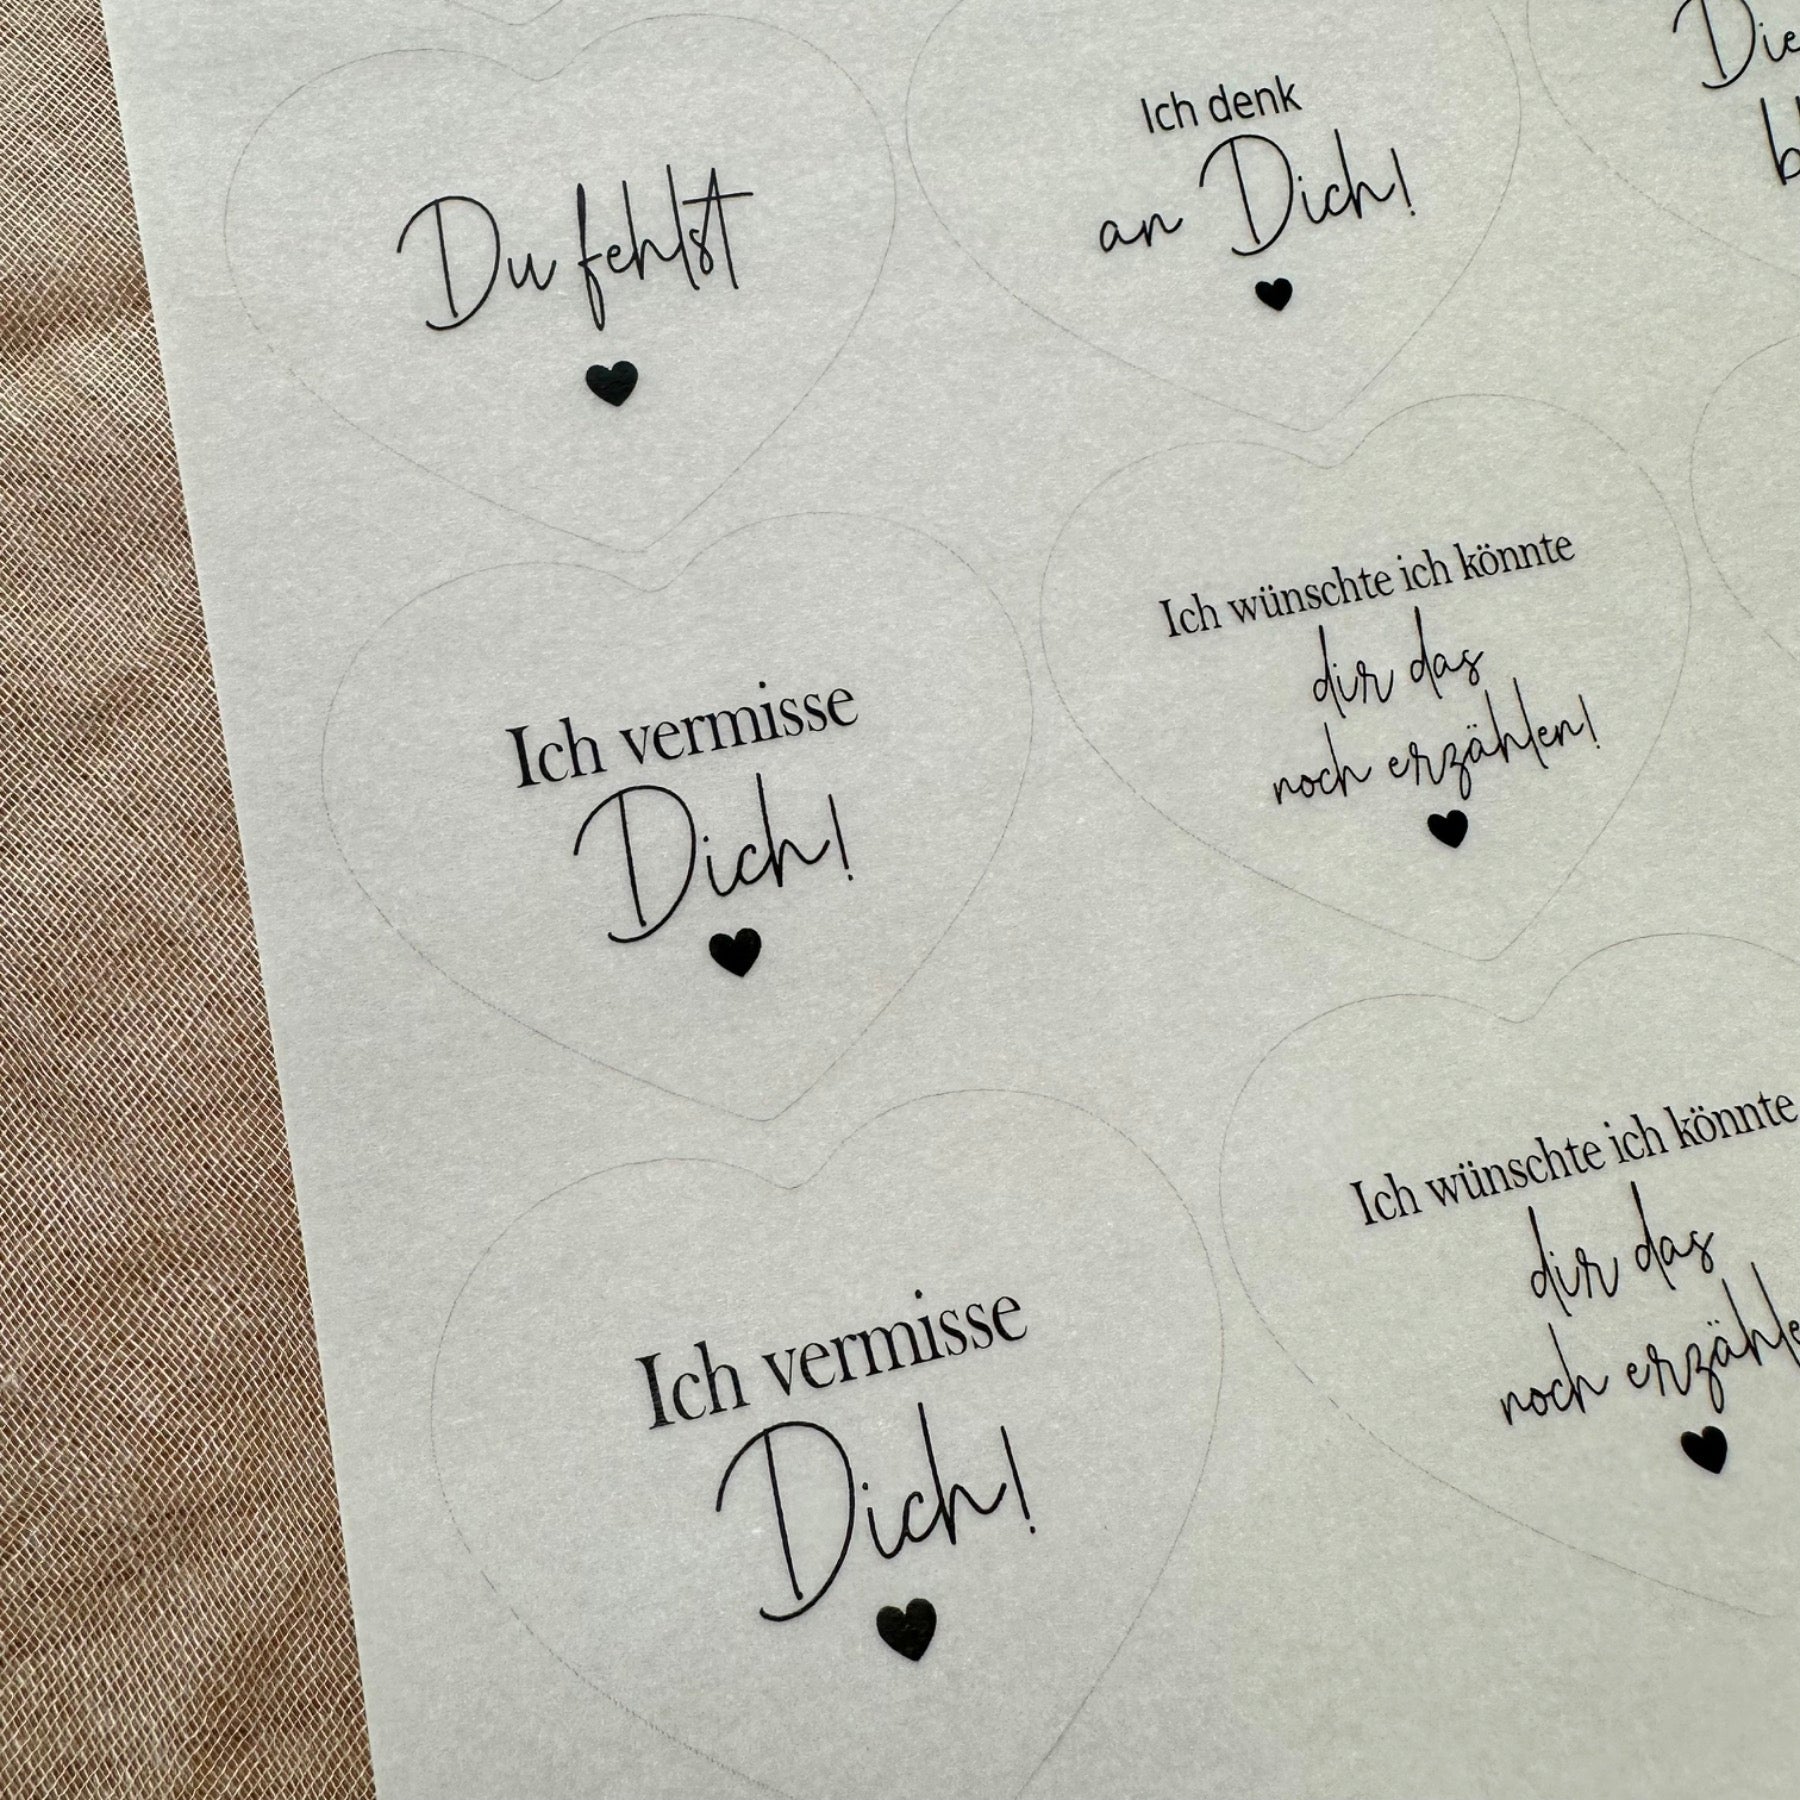 Du fehlst
Ich denk
an Dich!
Die
Ich vermisse
Dich!
Ich wünschte ich könnte
dir das
noch erzählen!
Ich vermisse
Dich!
Ich wünschte ich könnte
dir das
noch